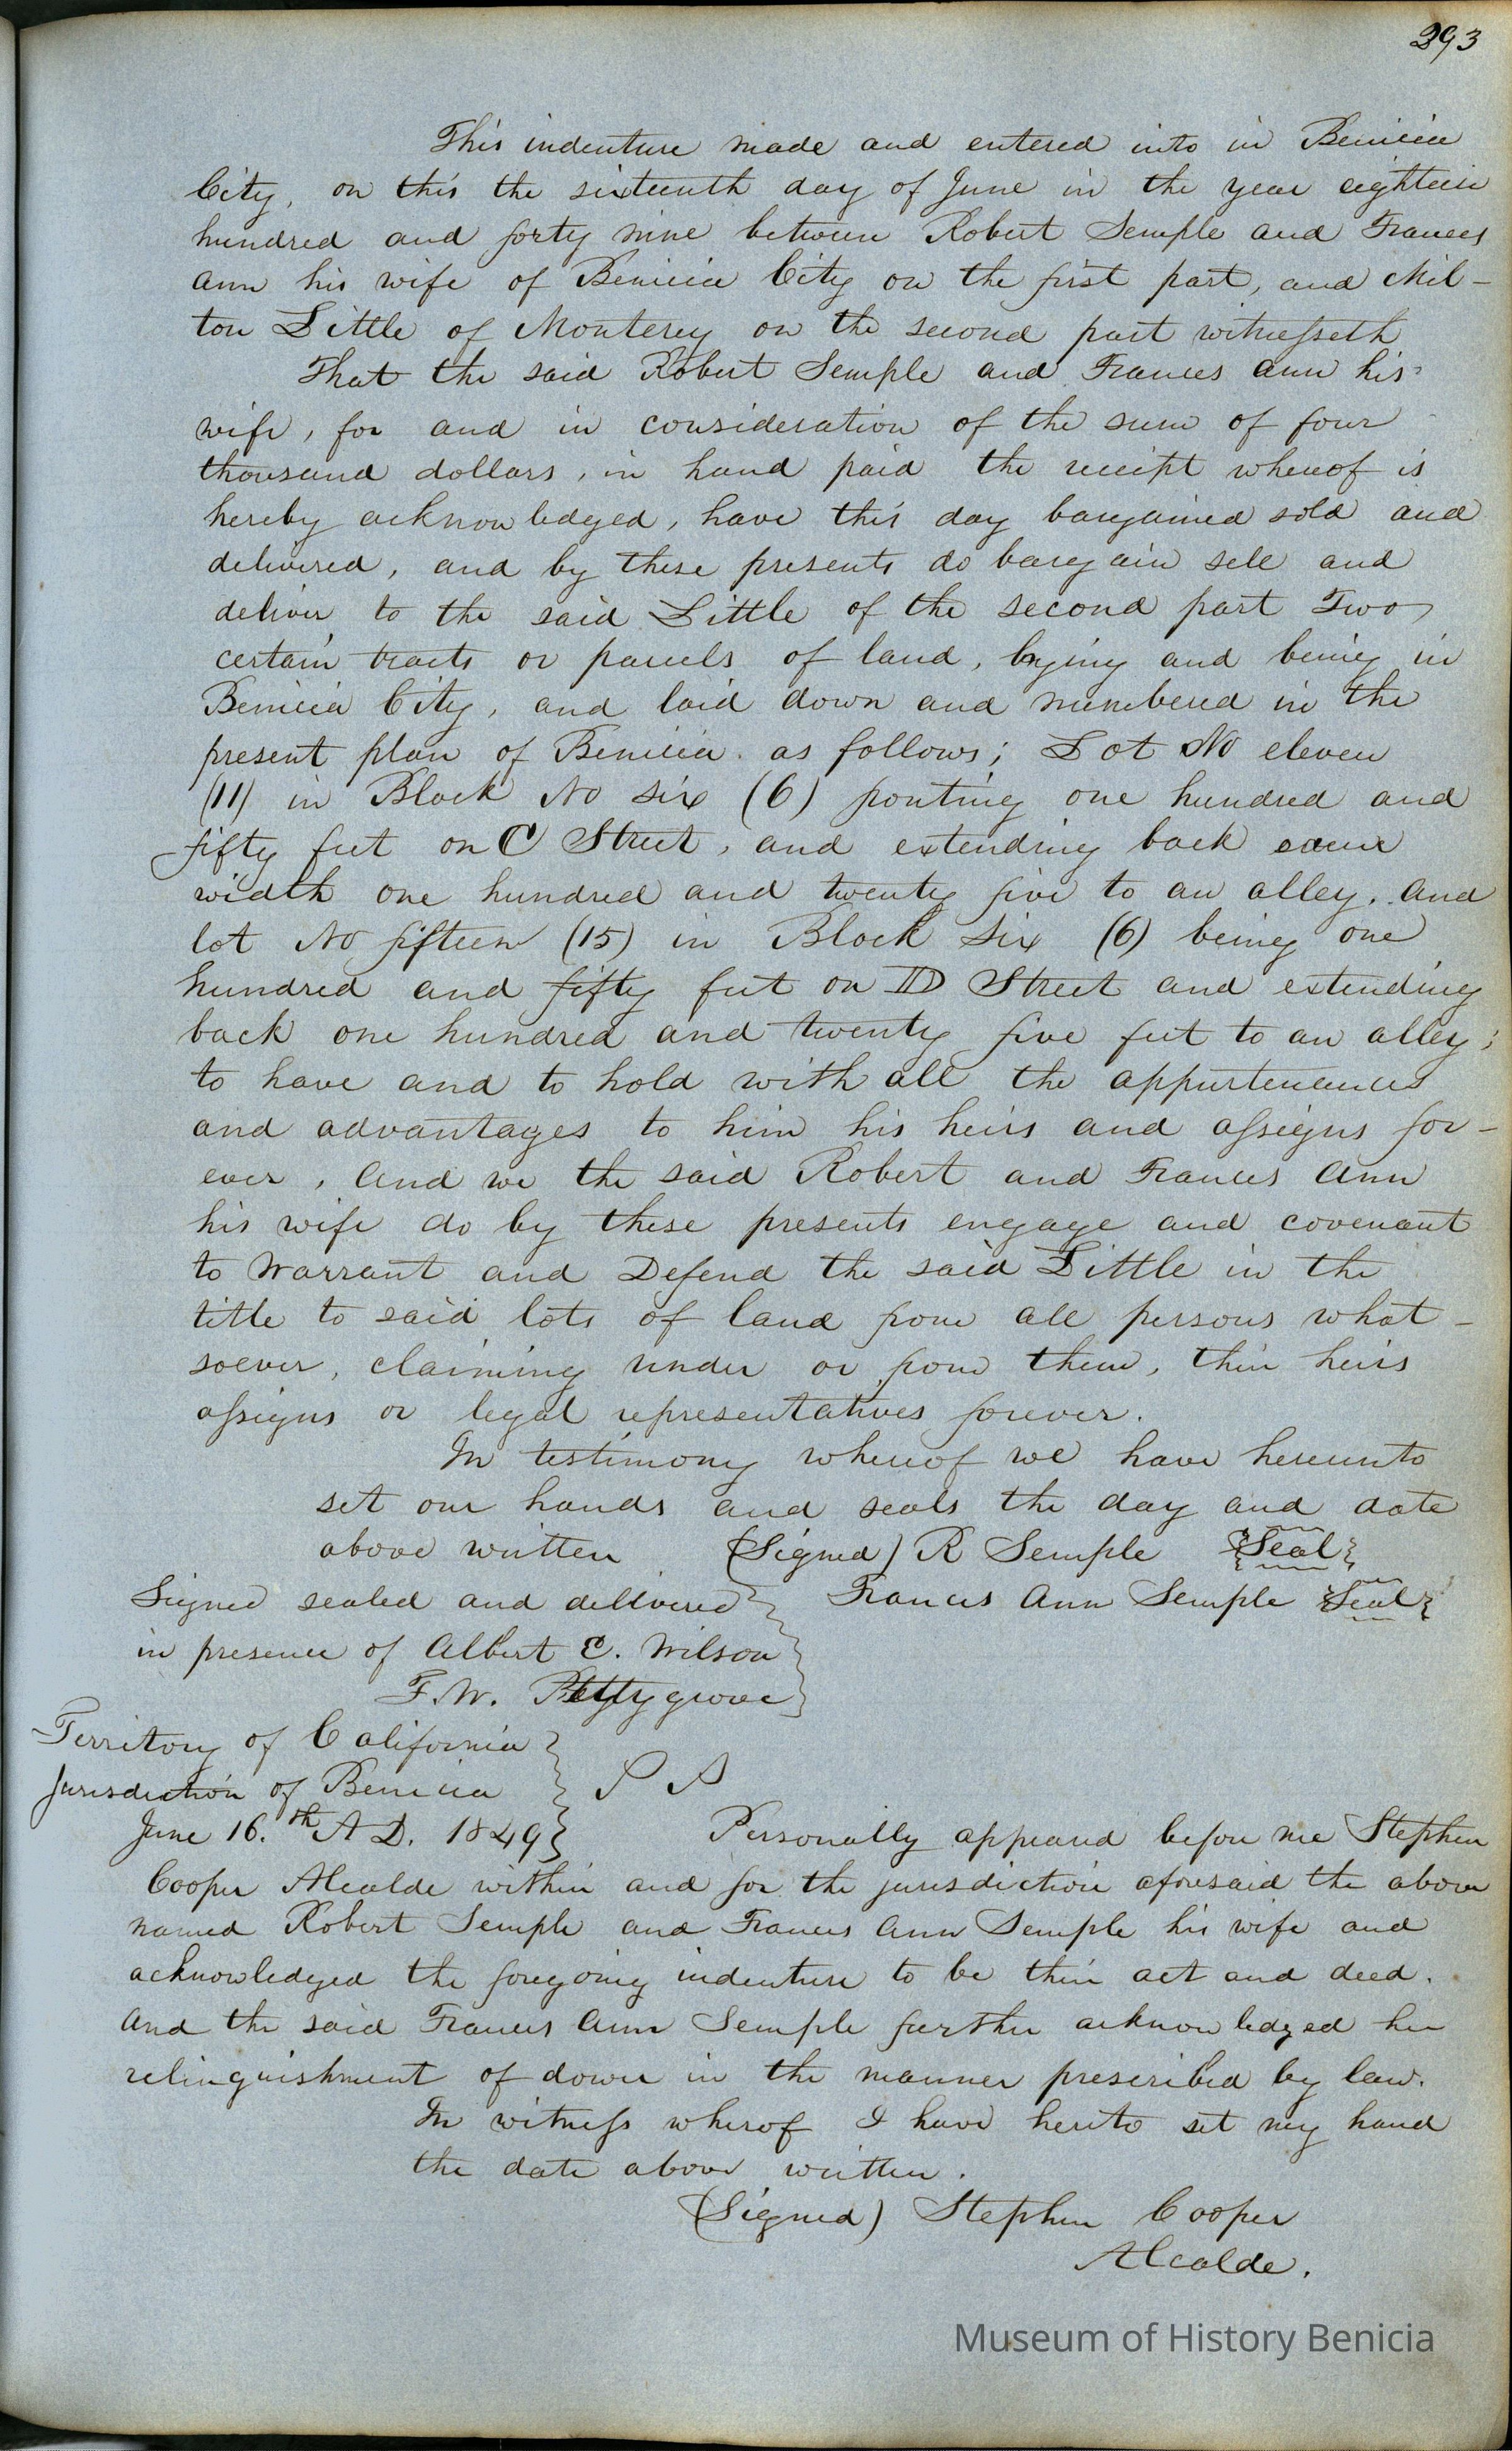 393
This indenture made and entered into in Benicia
City, on this the sixteenth day of June in the year eighteen
hundred and forty nine between Robert Semple and Frances
Ann his wife of Benicia City on the first part, and Mil-
ton Little of Monterey on the second part witnesseth
That the said Robert Semple and Frances Ann his
wife, for and in consideration of the sum of four
thousand dollars, in hand paid the receipt whereof is
hereby acknowledged, have this day bargained sold and
delivered, and by these presents do bargain sell and
deliver to the said Little of the second part Two
certain tracts or parcels of land, lying and being in
Benicia City, and laid down and numbered in the
present plan of Benicia as follows; Lot No eleven
(11) in Block No six (6) fronting one hundred and
fifty feet on C Street, and extending back same
width one hundred and twenty five to an alley. And
lot No fifteen (15) in Block Six (6) being one
hundred and fifty feet on D Street and extending
back one hundred and twenty five feet to an alley;
to have and to hold with all the appurtenances
and advantages to him his heirs and assigns for-
ever, And we the said Robert and Frances Ann
his wife do by these presents engage and covenant
to Warrant and Defend the said Little in the
title to said lots of land from all persons what-
soever, claiming under or from them, their heirs
assigns or legal representatives forever.
In testimony whereof we have hereunto
set our hands and seals the day and date
above written (Signed) R Semple {Seal}
Signed sealed and delivered } Frances Ann Semple {Seal}
in presence of Albert E. Wilson
F. W. Pettygrove
Territory of California
Jurisdiction of Benicia } S S
June 16.th A D. 1849 } Personally appeared before me Stephen
Cooper Alcalde within and for the jurisdiction aforesaid the above
named Robert Semple and Frances Ann Semple his wife and
acknowledged the foregoing indenture to be their act and deed.
And the said Frances Ann Semple further acknowledged her
relinquishment of dower in the manner prescribed by law.
In witness wherof I have hereto set my hand
the date above written.
(Signed) Stephen Cooper
Alcalde.
Museum of History Benicia